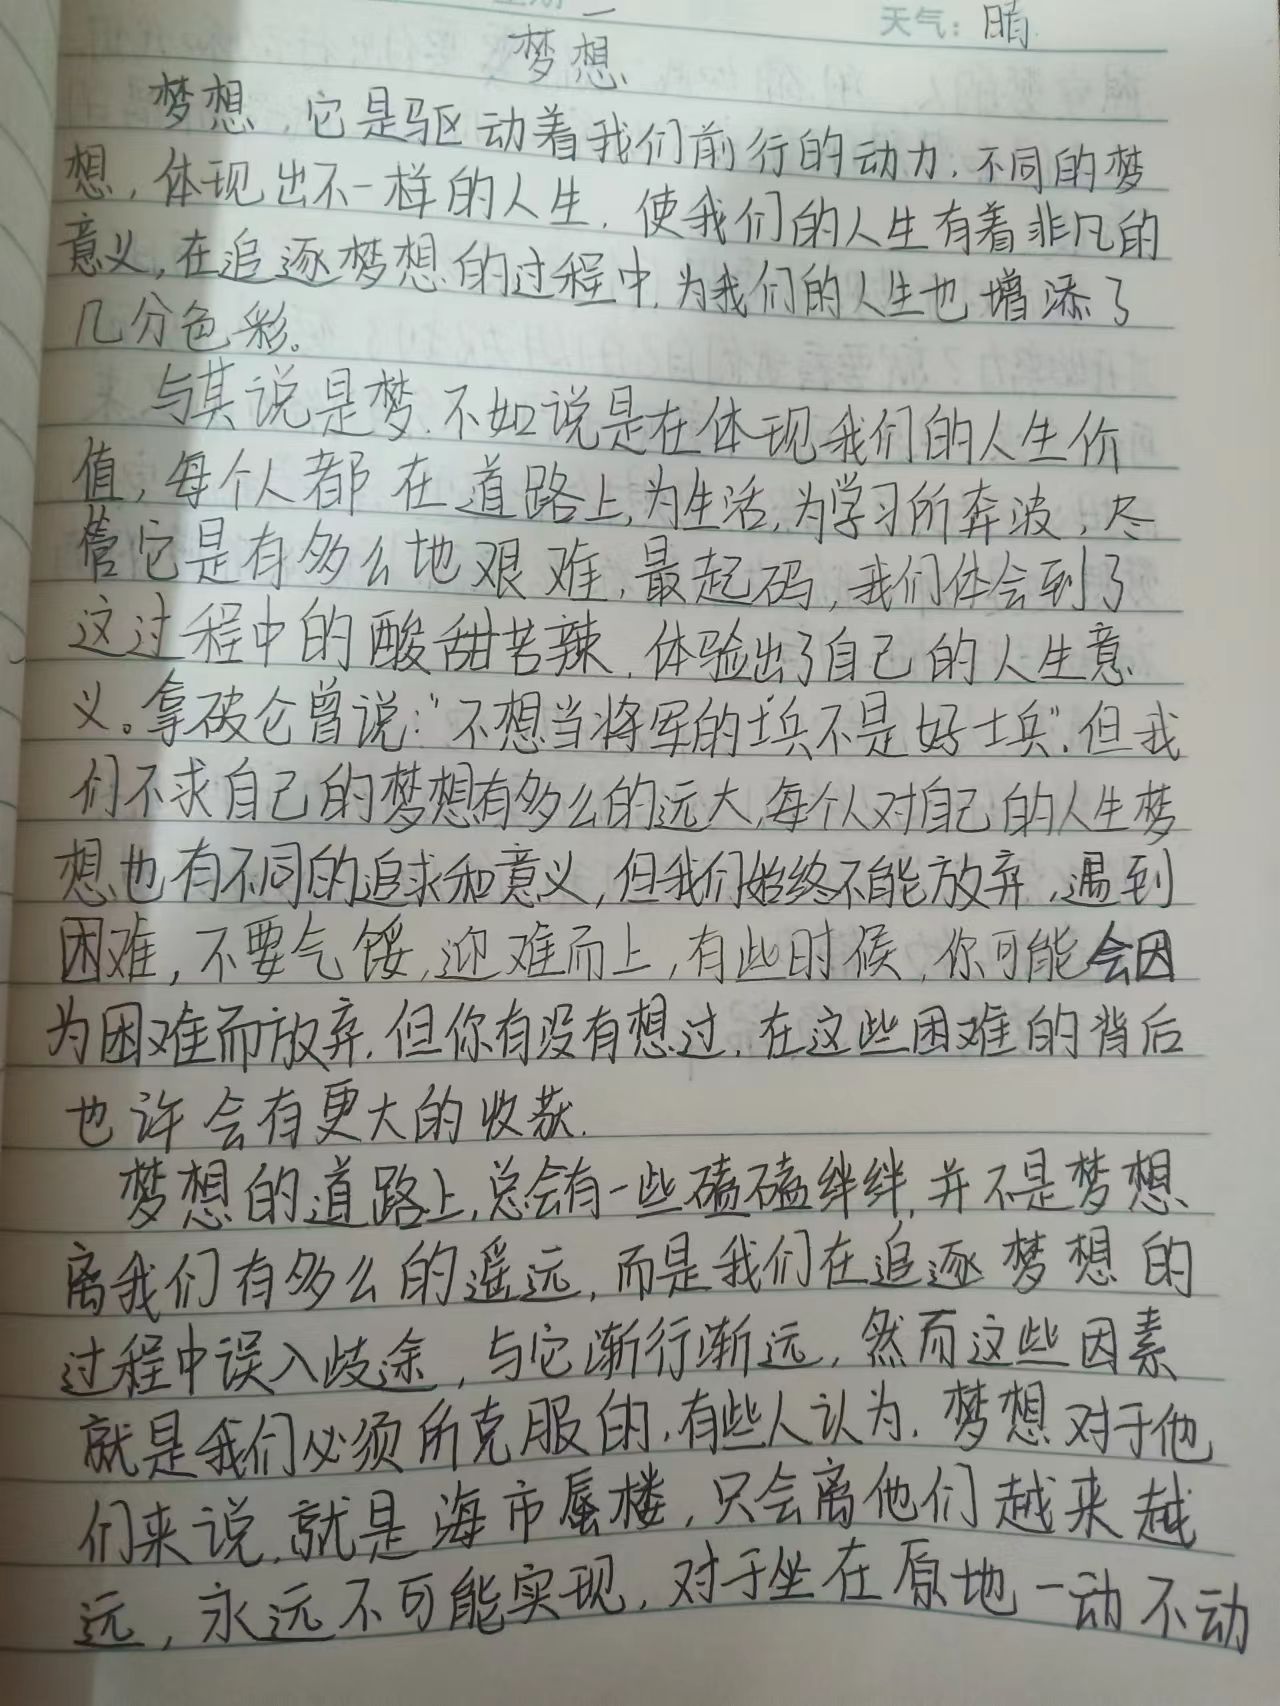 天气：晴
梦想
梦想，它是驱动着我们前行的动力，不同的梦
想，体现出不一样的人生，使我们的人生有着非凡的
意义，在追逐梦想的过程中，为我们的人生也增添了
几分色彩。
与其说是梦，不如说是在体现我们的人生价
值，每个人都在道路上，为生活，为学习所奔波，尽
管它是有多么地艰难，最起码，我们体会到了
这过程中的酸甜苦辣，体验出了自己的人生意
义。拿破仑曾说：“不想当将军的士兵不是好士兵”，但我
们不求自己的梦想有多么的远大，每个人对自己的人生梦
想也有不同的追求和意义，但我们始终不能放弃，遇到
困难，不要气馁，迎难而上，有些时候，你可能会因
为困难而放弃，但你有没有想过，在这些困难的背后
也许会有更大的收获.
梦想的道路上，总会有一些磕磕绊绊，并不是梦想
离我们有多么的遥远，而是我们在追逐梦想的
过程中误入歧途，与它渐行渐远，然而这些因素
就是我们必须所克服的，有些人认为，梦想对于他
们来说，就是海市蜃楼，只会离他们越来越
远，永远不可能实现，对于坐在原地一动不动